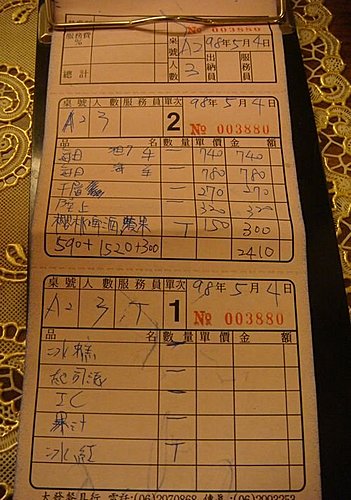 服務費
%
總計
桌號 A2 98年5月4日
人數 3 出納員 服務員
No 003880
桌號 人數 服務員 單次 98年5月4日
A2 3 2 No 003880
品名 數量 單價 金額
每日 一 740 740
每日 一 780 780
一 270 270
陸上 一 320 320
櫻桃啤酒蘋果 T 150 300
590+1520+300 2410
桌號 人數 服務員 單次 98年5月4日
A2 3 T 1 No 003880
品名 數量 單價 金額
冰糕 一
起司 一
JC 一
果汁 一
冰紅 T
大發餐具行 電話:(06)2070868 傳真:(06)2003252